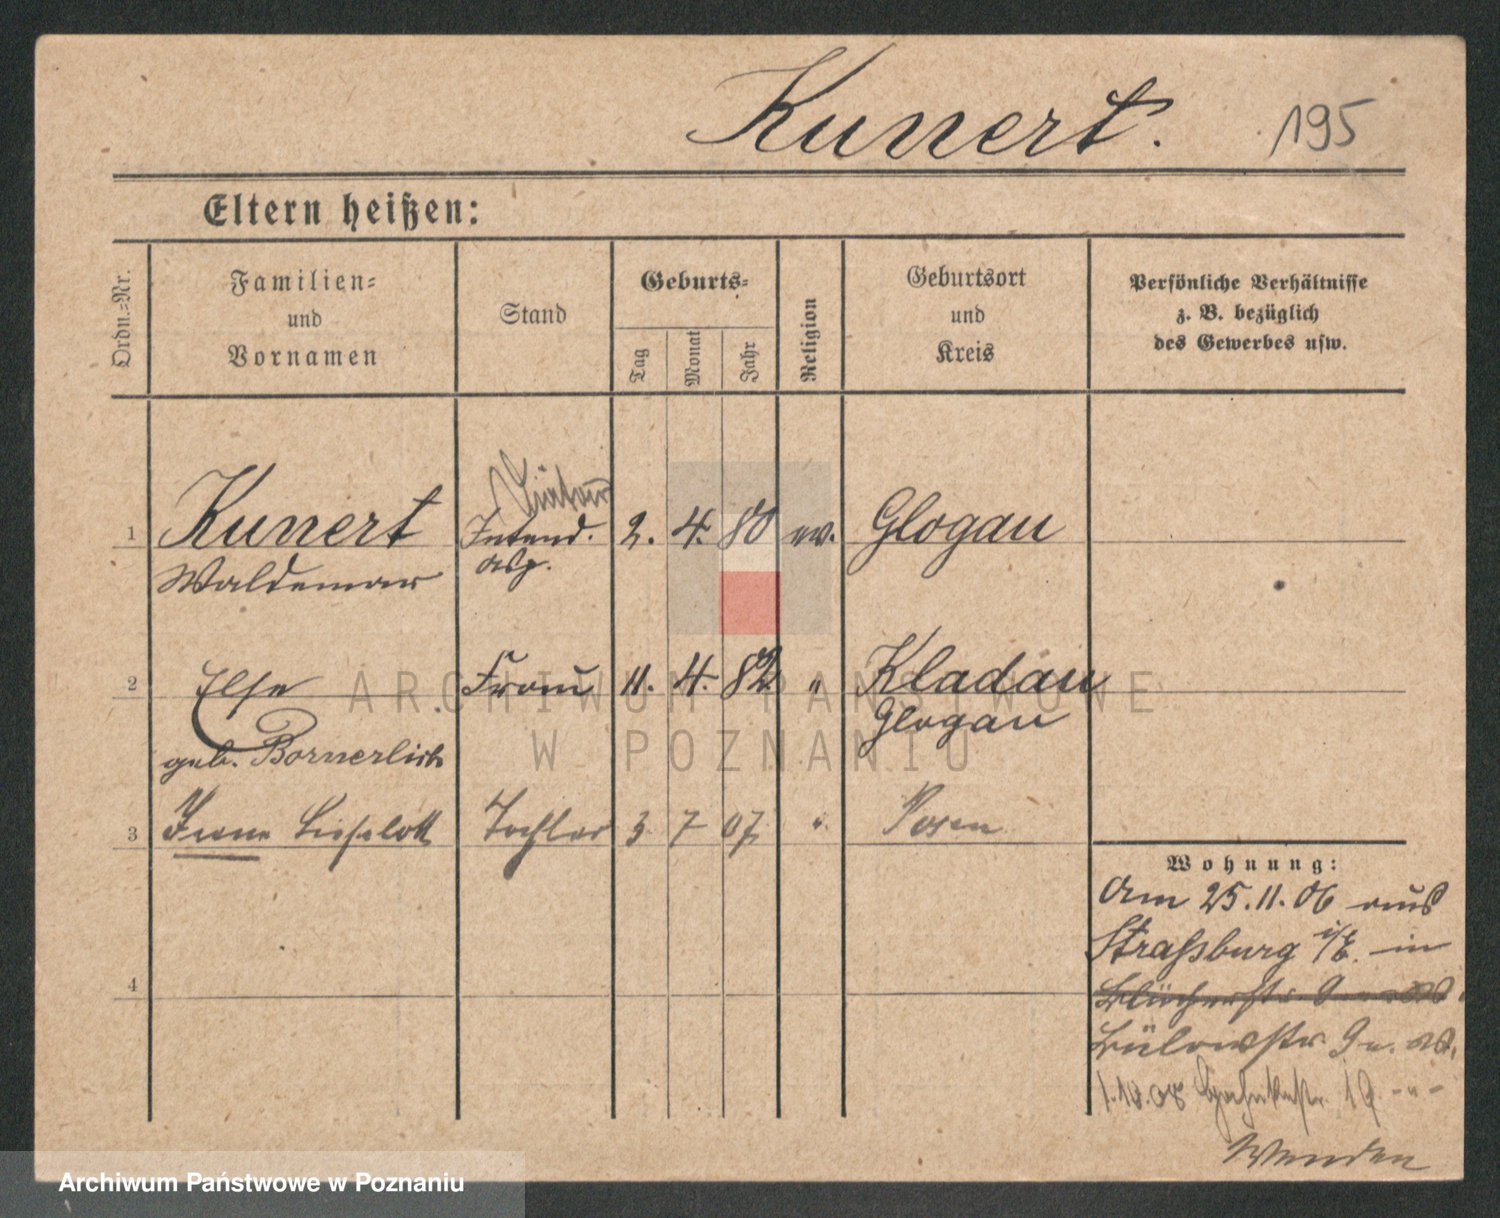 Kunert.
195
Eltern heißen:
Ordn.-Nr.
Familien-
und
Vornamen
Stand
Geburts-
Tag
Monat
Jahr
Religion
Geburtsort
und
Kreis
Persönliche Verhältnisse
z. B. bezüglich
des Gewerbes usw.
1 Kunert Intend. 2. 4. 80 ev. Glogau
Waldemar asp.
2 Else Frau 11. 4. 82 " Kladau
Glogau
geb. Bornerlich
3 Irene Lieselott Tochter 3 7 07 " Posen
4
Wohnung:
Am 25.11.06 aus
Straßburg i/E. in
Blücherstr.
Bülowstr. 9
1.10.08 19 - " -
Wenden
ARCHIWUM PAŃSTWOWE
W POZNANIU
Archiwum Państwowe w Poznaniu